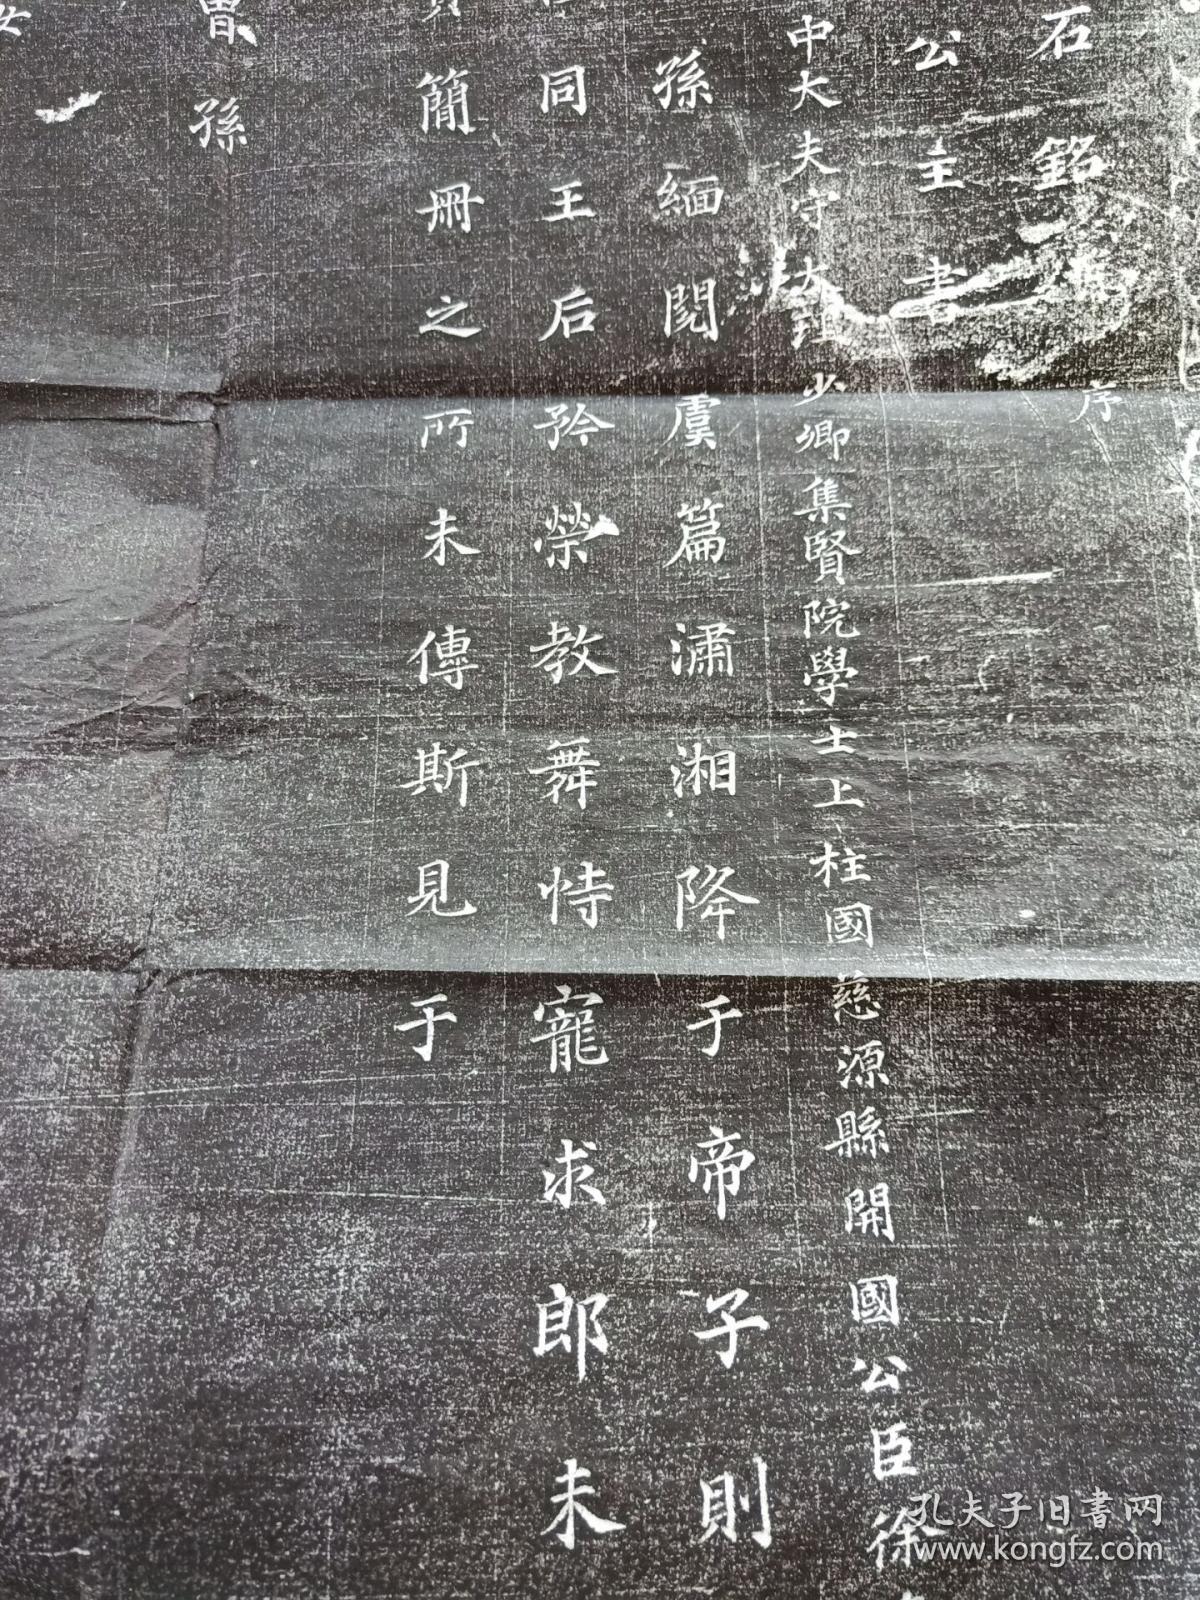 石銘并序
公主書
中大夫守大理少卿集賢院學士上柱國慈源縣開國公臣徐
孫緬閱虞篇瀟湘降于帝子則
同王后矜榮教舞恃寵求郎未
簡冊之所未傳斯見于
胄孫
女
孔夫子旧書网
www.kongfz.com